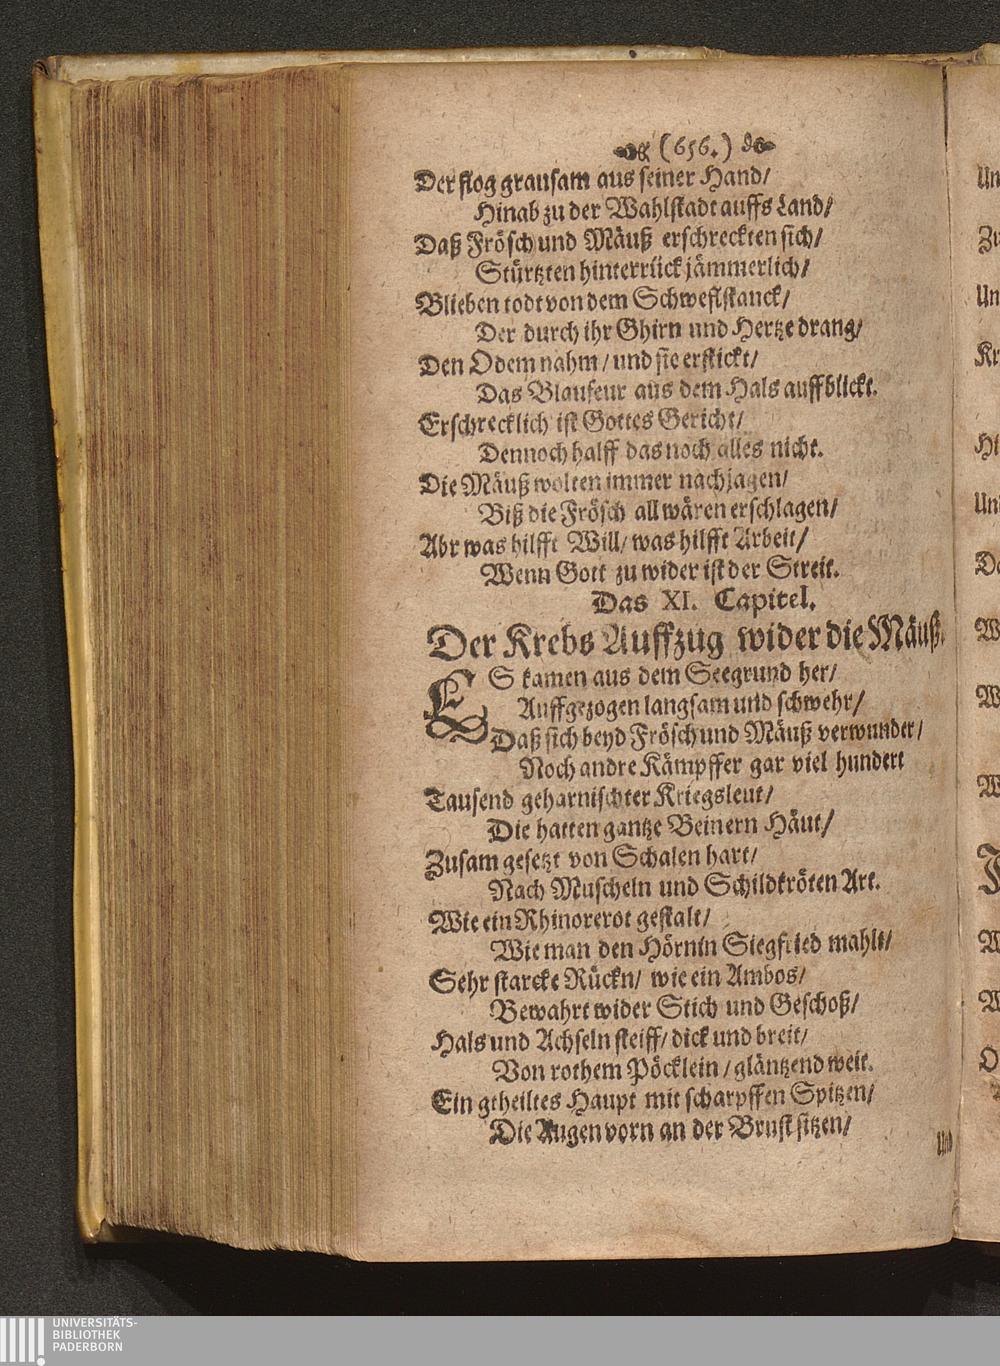 (656.)
Der flog grausam aus seiner Hand/
Hinab zu der Wahlstadt auffs Land/
Daß Frösch und Mäuß erschreckten sich/
Stürtzten hinterrück jämmerlich/
Blieben todt von dem Schweflstanck/
Der durch ihr Ghirn und Hertze drang/
Den Odem nahm/ und sie erstickt/
Das Blaufeur aus dem Hals auffblickt.
Erschrecklich ist Gottes Gericht/
Dennoch halff das noch alles nicht.
Die Mäuß wolten immer nachjagen/
Biß die Frösch all wären erschlagen/
Abr was hilfft Will/ was hilfft Arbeit/
Wenn Gott zu wider ist der Streit.
Das XI. Capitel.
Der Krebs Auffzug wider die Mäuß.
ES kamen aus dem Seegrund her/
Auffgezogen langsam und schwehr/
Daß sich beyd Frösch und Mäuß verwunder/
Noch andre Kämpffer gar viel hundert
Tausend geharnischter Kriegsleut/
Die hatten gantze Beinern Häut/
Zusam gesetzt von Schalen hart/
Nach Muscheln und Schildkröten Art.
Wie ein Rhinorerot gestalt/
Wie man den Hörnin Siegfried mahlt/
Sehr starcke Rückn/ wie ein Ambos/
Bewahrt wider Stich und Geschoß/
Hals und Achseln steiff/ dick und breit/
Von rothem Pöcklein/ gläntzend weit.
Ein gtheiltes Haupt mit scharpffen Spitzen/
Die Augen vorn an der Brust sitzen/
Und
Un
Zu
Un
Kr
Hi
Un
De
W
W
W
W
W
O
UNIVERSITÄTS-
BIBLIOTHEK
PADERBORN